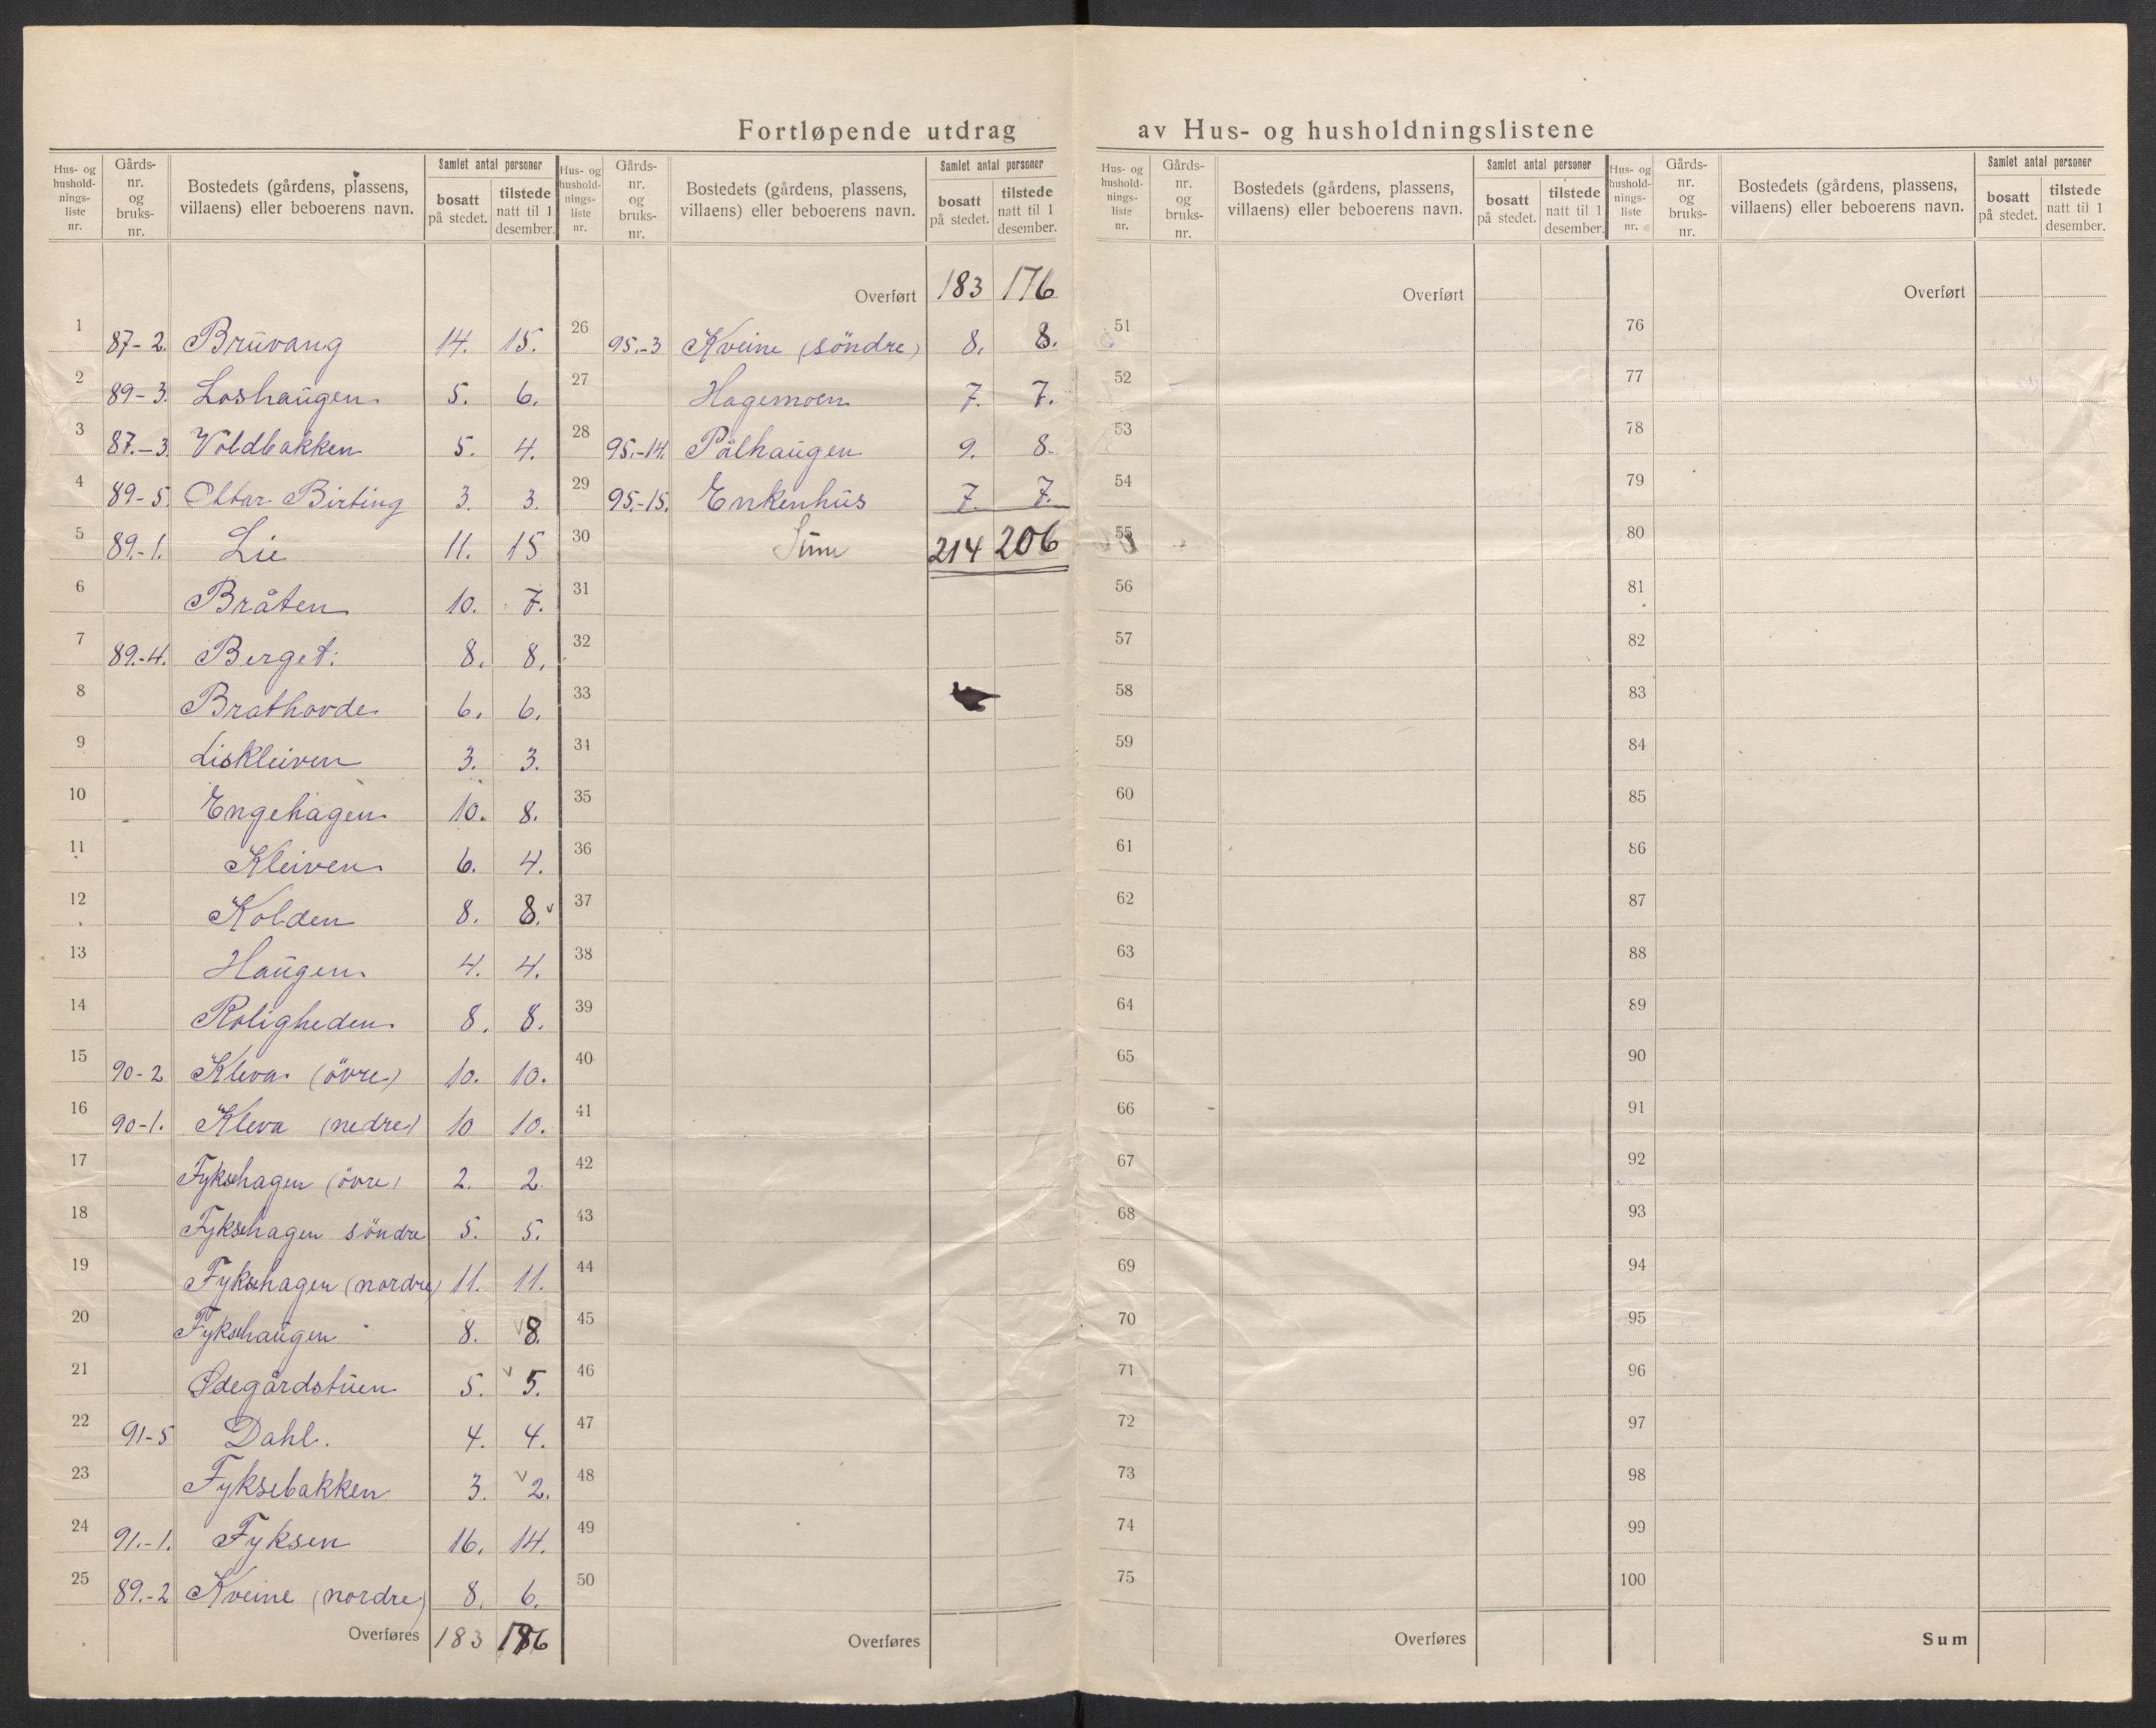 Fortløpende utdrag av Hus- og husholdningslistene
Hus- og husholdningsliste nr. | Gårds-nr. og bruks-nr. | Bostedets (gårdens, plassens, villaens) eller beboerens navn. | Samlet antal personer bosatt på stedet. | tilstede natt til 1 desember.
1 87-2. Bruvang 14. 15.
2 89-3. Loshaugen 5. 6.
3 87.-3. Voldbakken 5. 4.
4 89-5. Ottar Birting 3. 3.
5 89.-1. Lie 11. 15
6 Bråten 10. 7.
7 89.-4. Berget. 8. 8.
8 Brathovde 6. 6.
9 Liskleiven 3. 3.
10 Engehagen 10. 8.
11 Kleiven 6. 4.
12 Kolden 8. 8.
13 Haugen 4. 4.
14 Roligheden 8. 8.
15 90-2 Kleva (övre) 10. 10.
16 90-1. Kleva (nedre) 10 10.
17 Fyksehagen (övre) 2. 2.
18 Fyksehagen söndre 5. 5.
19 Fyksehagen (nordre) 11. 11.
20 Fyksehaugen 8. 8.
21 Ødegårdstuen 5. 5.
22 91-5 Dahl. 4. 4.
23 Fyksebakken 3. 2.
24 91.-1. Fyksen 16. 14.
25 89.-2 Kveine (nordre) 8. 6.
Overføres 183 176
Hus- og husholdningsliste nr. | Gårds-nr. og bruks-nr. | Bostedets (gårdens, plassens, villaens) eller beboerens navn. | Samlet antal personer bosatt på stedet. | tilstede natt til 1 desember.
Overført 183 176
26 95.-3 Kveine (söndre) 8. 8.
27 Hagemoen 7. 7.
28 95.-14. Pålhaugen 9. 8.
29 95.-15. Enkenhus 7. 7.
30 Sum 214 206
31
32
33
34
35
36
37
38
39
40
41
42
43
44
45
46
47
48
49
50
Overføres
Hus- og husholdningsliste nr. | Gårds-nr. og bruks-nr. | Bostedets (gårdens, plassens, villaens) eller beboerens navn. | Samlet antal personer bosatt på stedet. | tilstede natt til 1 desember.
Overført
51
52
53
54
55
56
57
58
59
60
61
62
63
64
65
66
67
68
69
70
71
72
73
74
75
Overføres
Hus- og husholdningsliste nr. | Gårds-nr. og bruks-nr. | Bostedets (gårdens, plassens, villaens) eller beboerens navn. | Samlet antal personer bosatt på stedet. | tilstede natt til 1 desember.
Overført
76
77
78
79
80
81
82
83
84
85
86
87
88
89
90
91
92
93
94
95
96
97
98
99
100
Sum